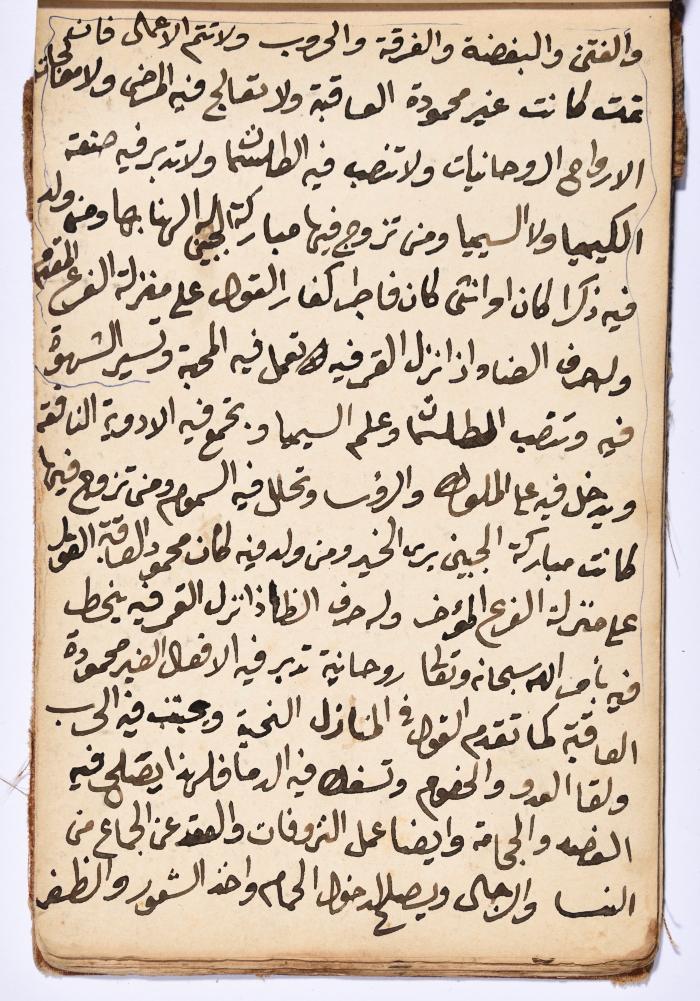 والفتن والبغضة والفرقة والحروب ولا تتم الاعمال فان
تمت كانت غير محمودة العاقبة ولا تعالج فيه المرضى ولا
الارواح الروحانيات ولا تنصب فيه الطلسمات ولا تدبر فيه صنعة
الكيميا ولا السيميا ومن تزوج فيها مباركة الجبين الهنا بها ومن ولد
فيه ذكرا كان او انثى كان فاجرا كفار القول على منزلة الفرغ المقدم
وله حرف الضاد اذا نزل القمر فيه تعمل فيه المحبة وتسير الشهوة
فيه وتنصب الطلسمات وعلم السيميا وتجمع فيه الادوية النافعة
ويدخل فيه على الملوك والرؤسا وتحلل فيه السموم ومن تزوج فيها
كانت مباركة الجبين يرى الخير ومن ولد فيه كان محمود العاقبة القول
على منزلة الفرغ المؤخر وله حرف الظا اذا نزل القمر فيه ينحط
فيه بأمر الله سبحانه وتعالى روحانية تدبر فيه الافعال الغير محمودة
العاقبة كما تقدم القول في المنازل النحية ويجتنب فيه الحرب
ولقا العدو والخصوم وتسفك فيه الدما فلهذا يصلح فيه
الفصد والحجامة وايضا عمل النزوفات والعقد عن الجماع من
النسا والرجال ويصلح لدخول الحمام واخذ الشعور والظفر